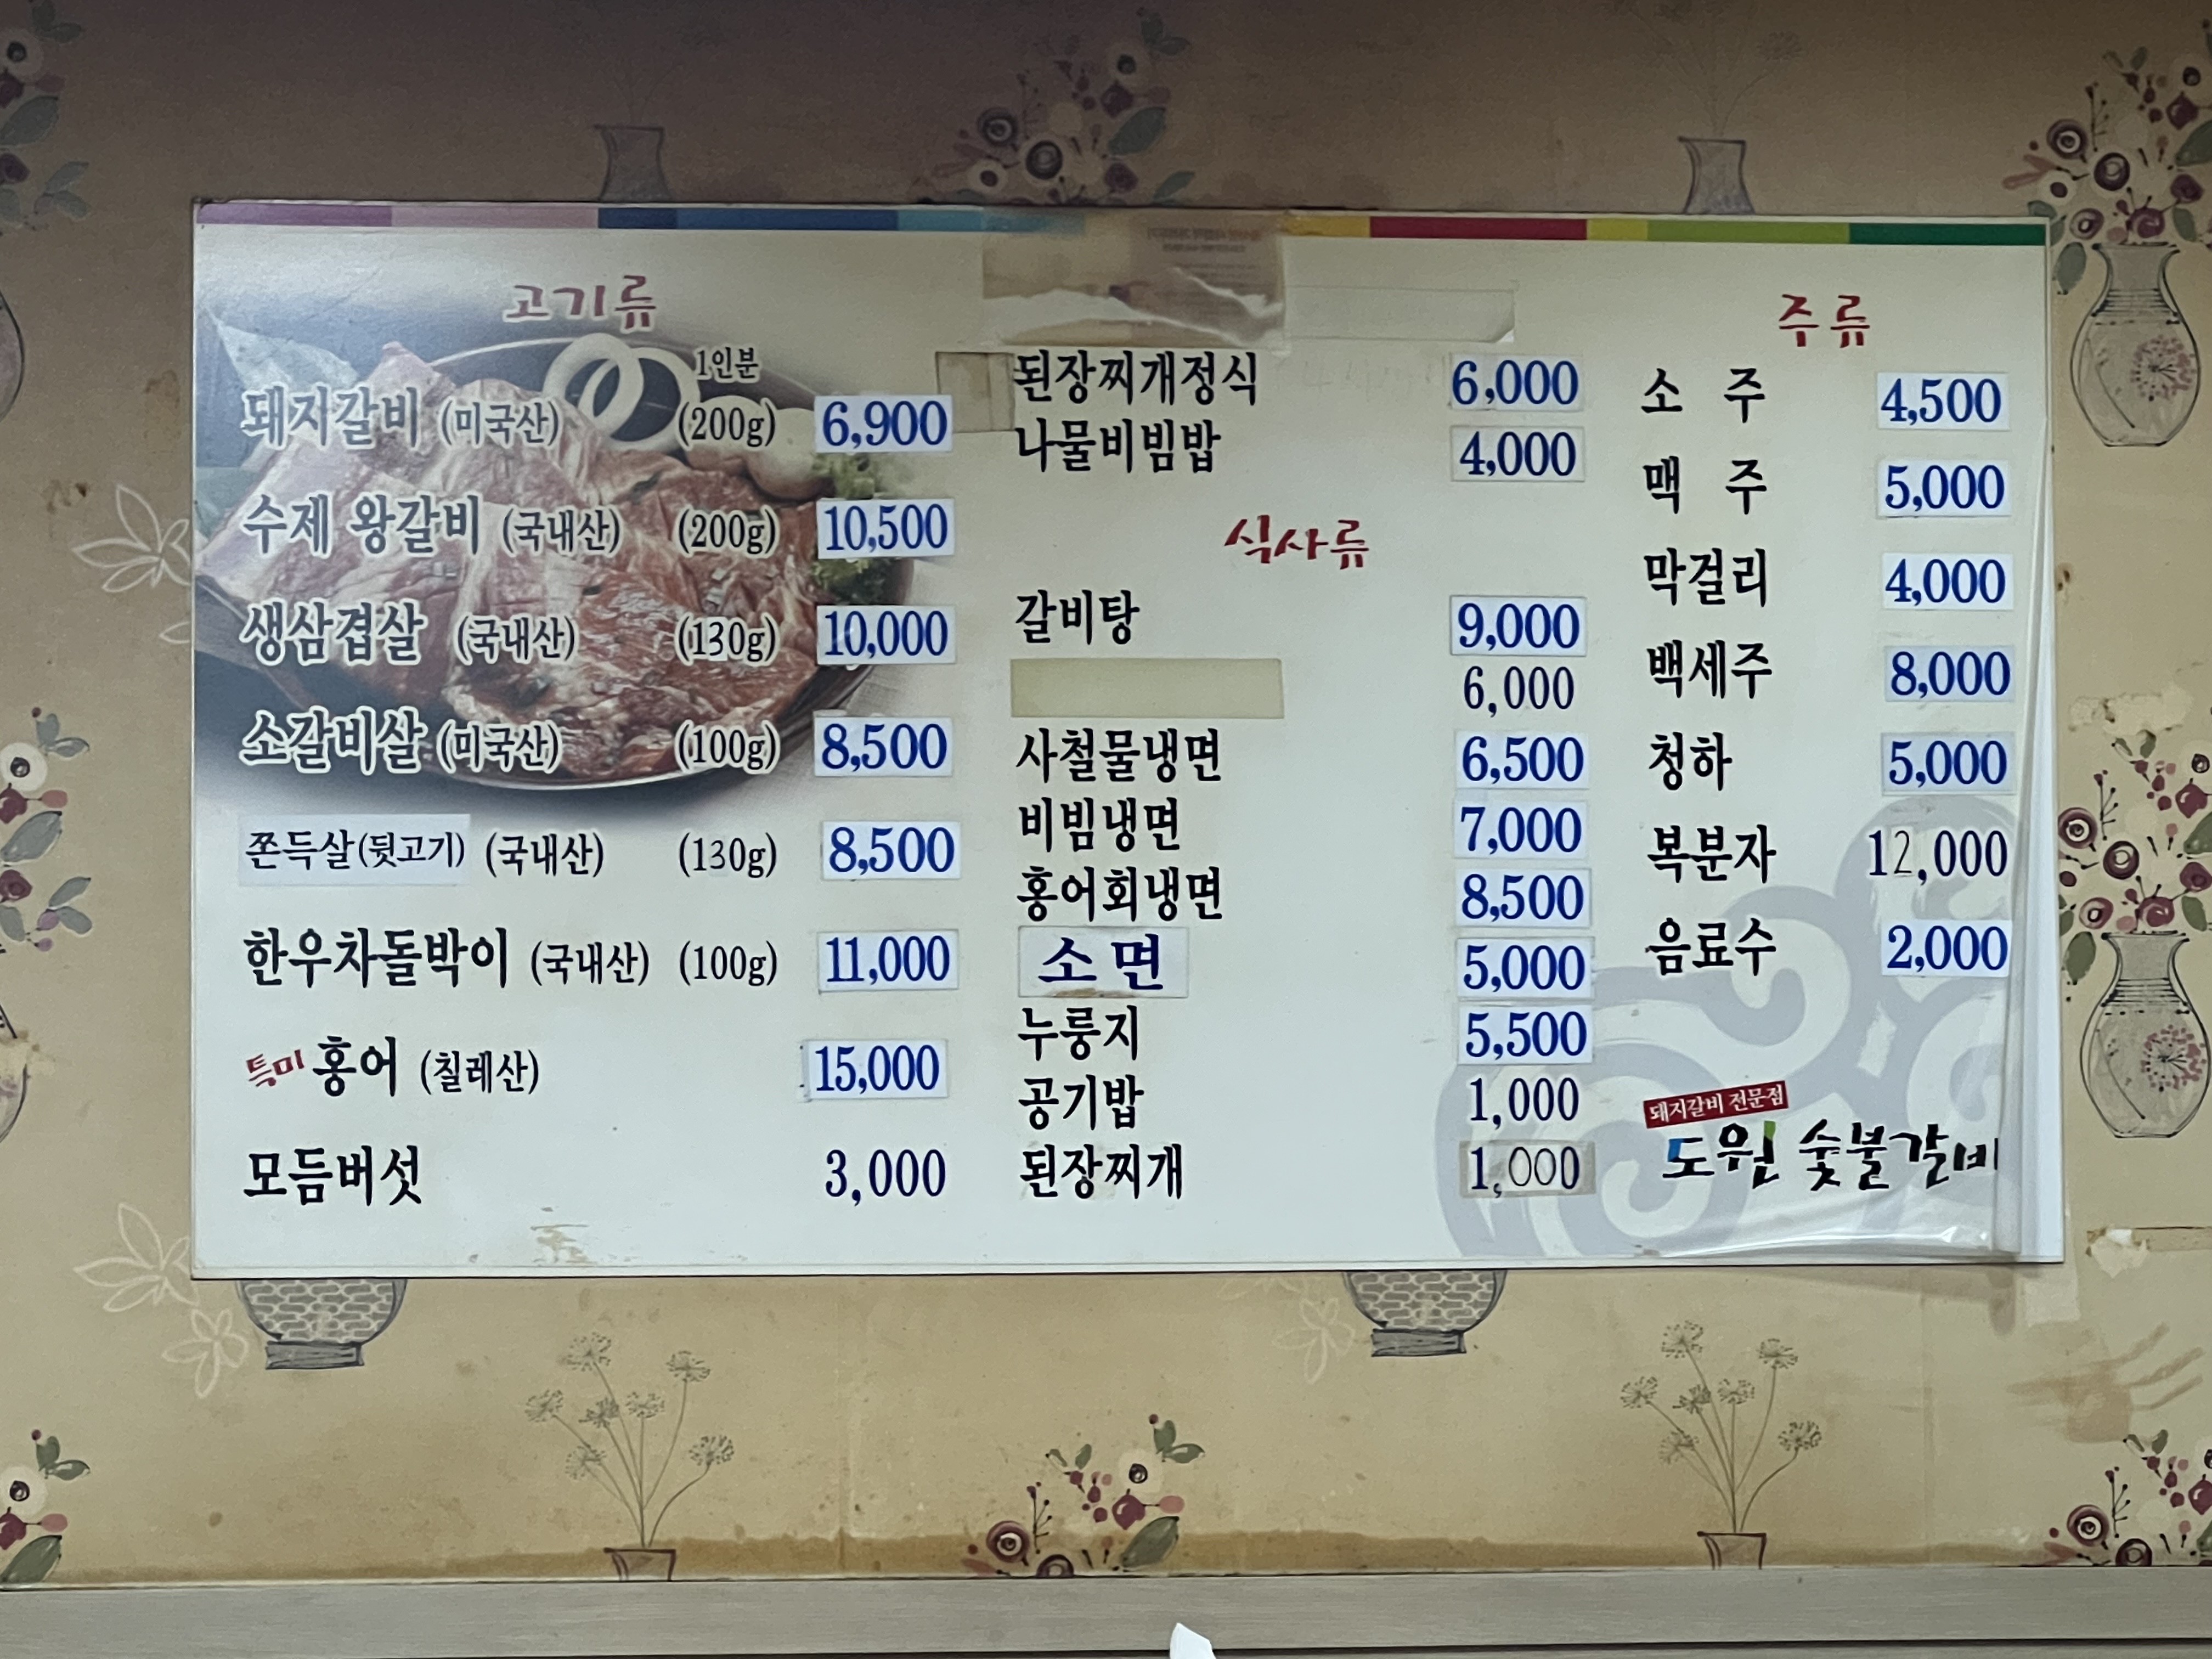 고기류
1인분
돼지갈비 (미국산) (200g) 6,900
수제 왕갈비 (국내산) (200g) 10,500
생삼겹살 (국내산) (130g) 10,000
소갈비살 (미국산) (100g) 8,500
쫀득살(뒷고기) (국내산) (130g) 8,500
한우차돌박이 (국내산) (100g) 11,000
특미 홍어 (칠레산) 15,000
모듬버섯 3,000
된장찌개정식 6,000
나물비빔밥 4,000
식사류
갈비탕 9,000
6,000
사철물냉면 6,500
비빔냉면 7,000
홍어회냉면 8,500
소면 5,000
누룽지 5,500
공기밥 1,000
된장찌개 1,000
주류
소 주 4,500
맥 주 5,000
막걸리 4,000
백세주 8,000
청하 5,000
복분자 12,000
음료수 2,000
돼지갈비 전문점
도원 숯불갈비